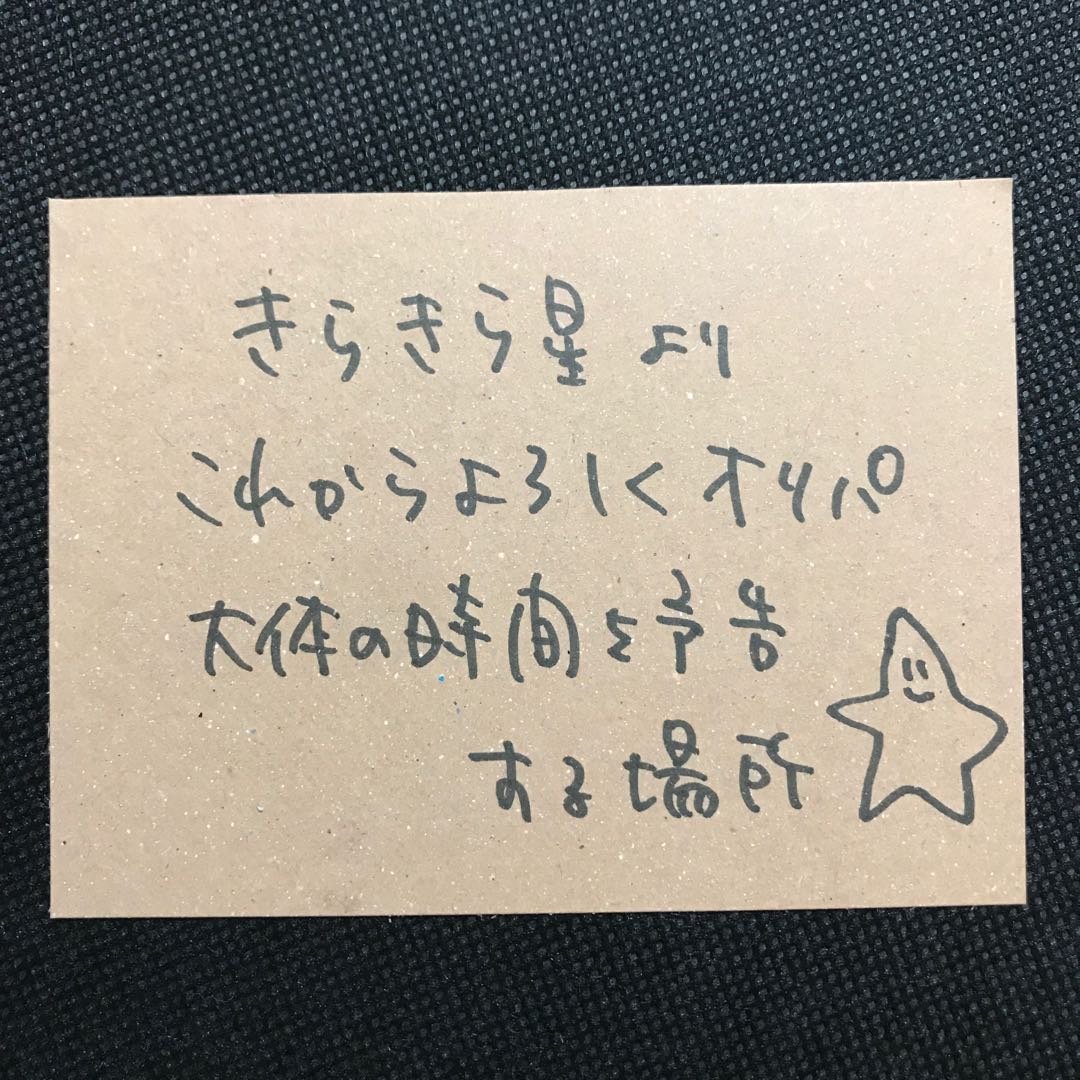 きらきら星より
これからよろしくオリパ
大体の時間を予告
する場所